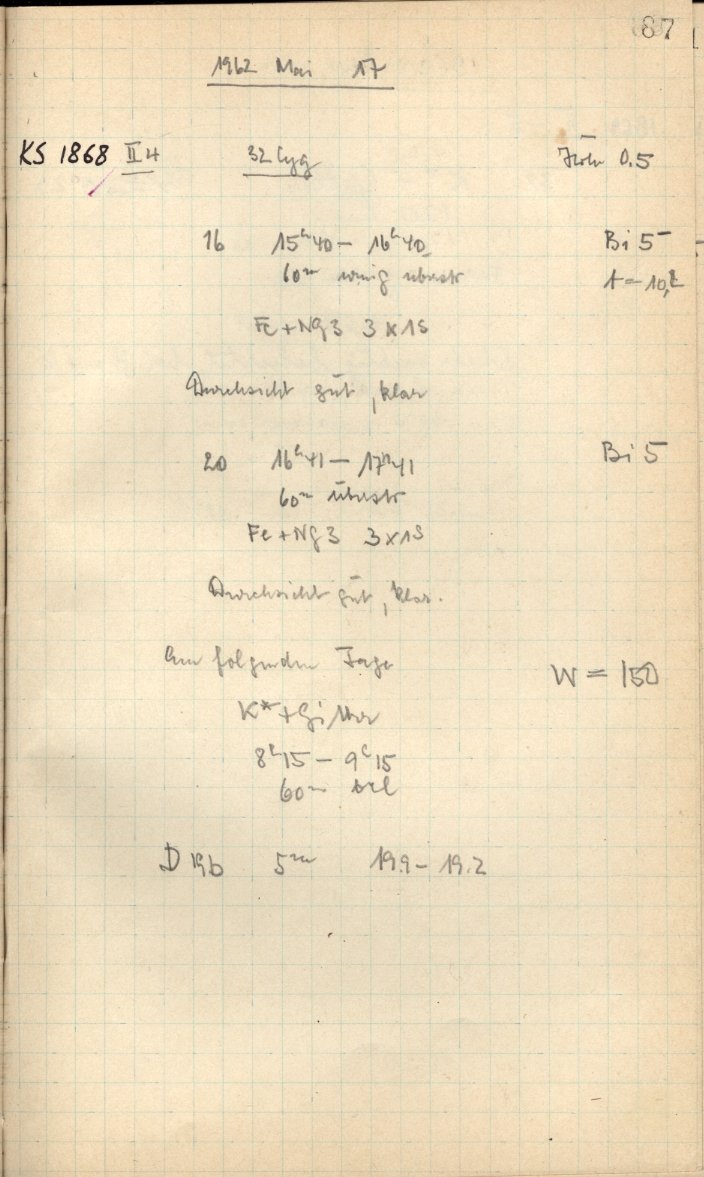 67
1962 Mai 17
KS 1868 II 4 32 Cyg 0.5
16 15h40 – 16h40 Bi 5–
60m wenig überstr t = 10,2
Fe + Ng3 3 x 1s
Durchsicht gut, klar
20 16h41 – 17h41 Bi 5
60m überstr
Fe + Ng3 3 x 1s
Durchsicht gut, klar.
Am folgenden Tage W = 150
K* + Gitter
8h15 – 9h15
60m
D 19b 5m 19.9 – 19.2